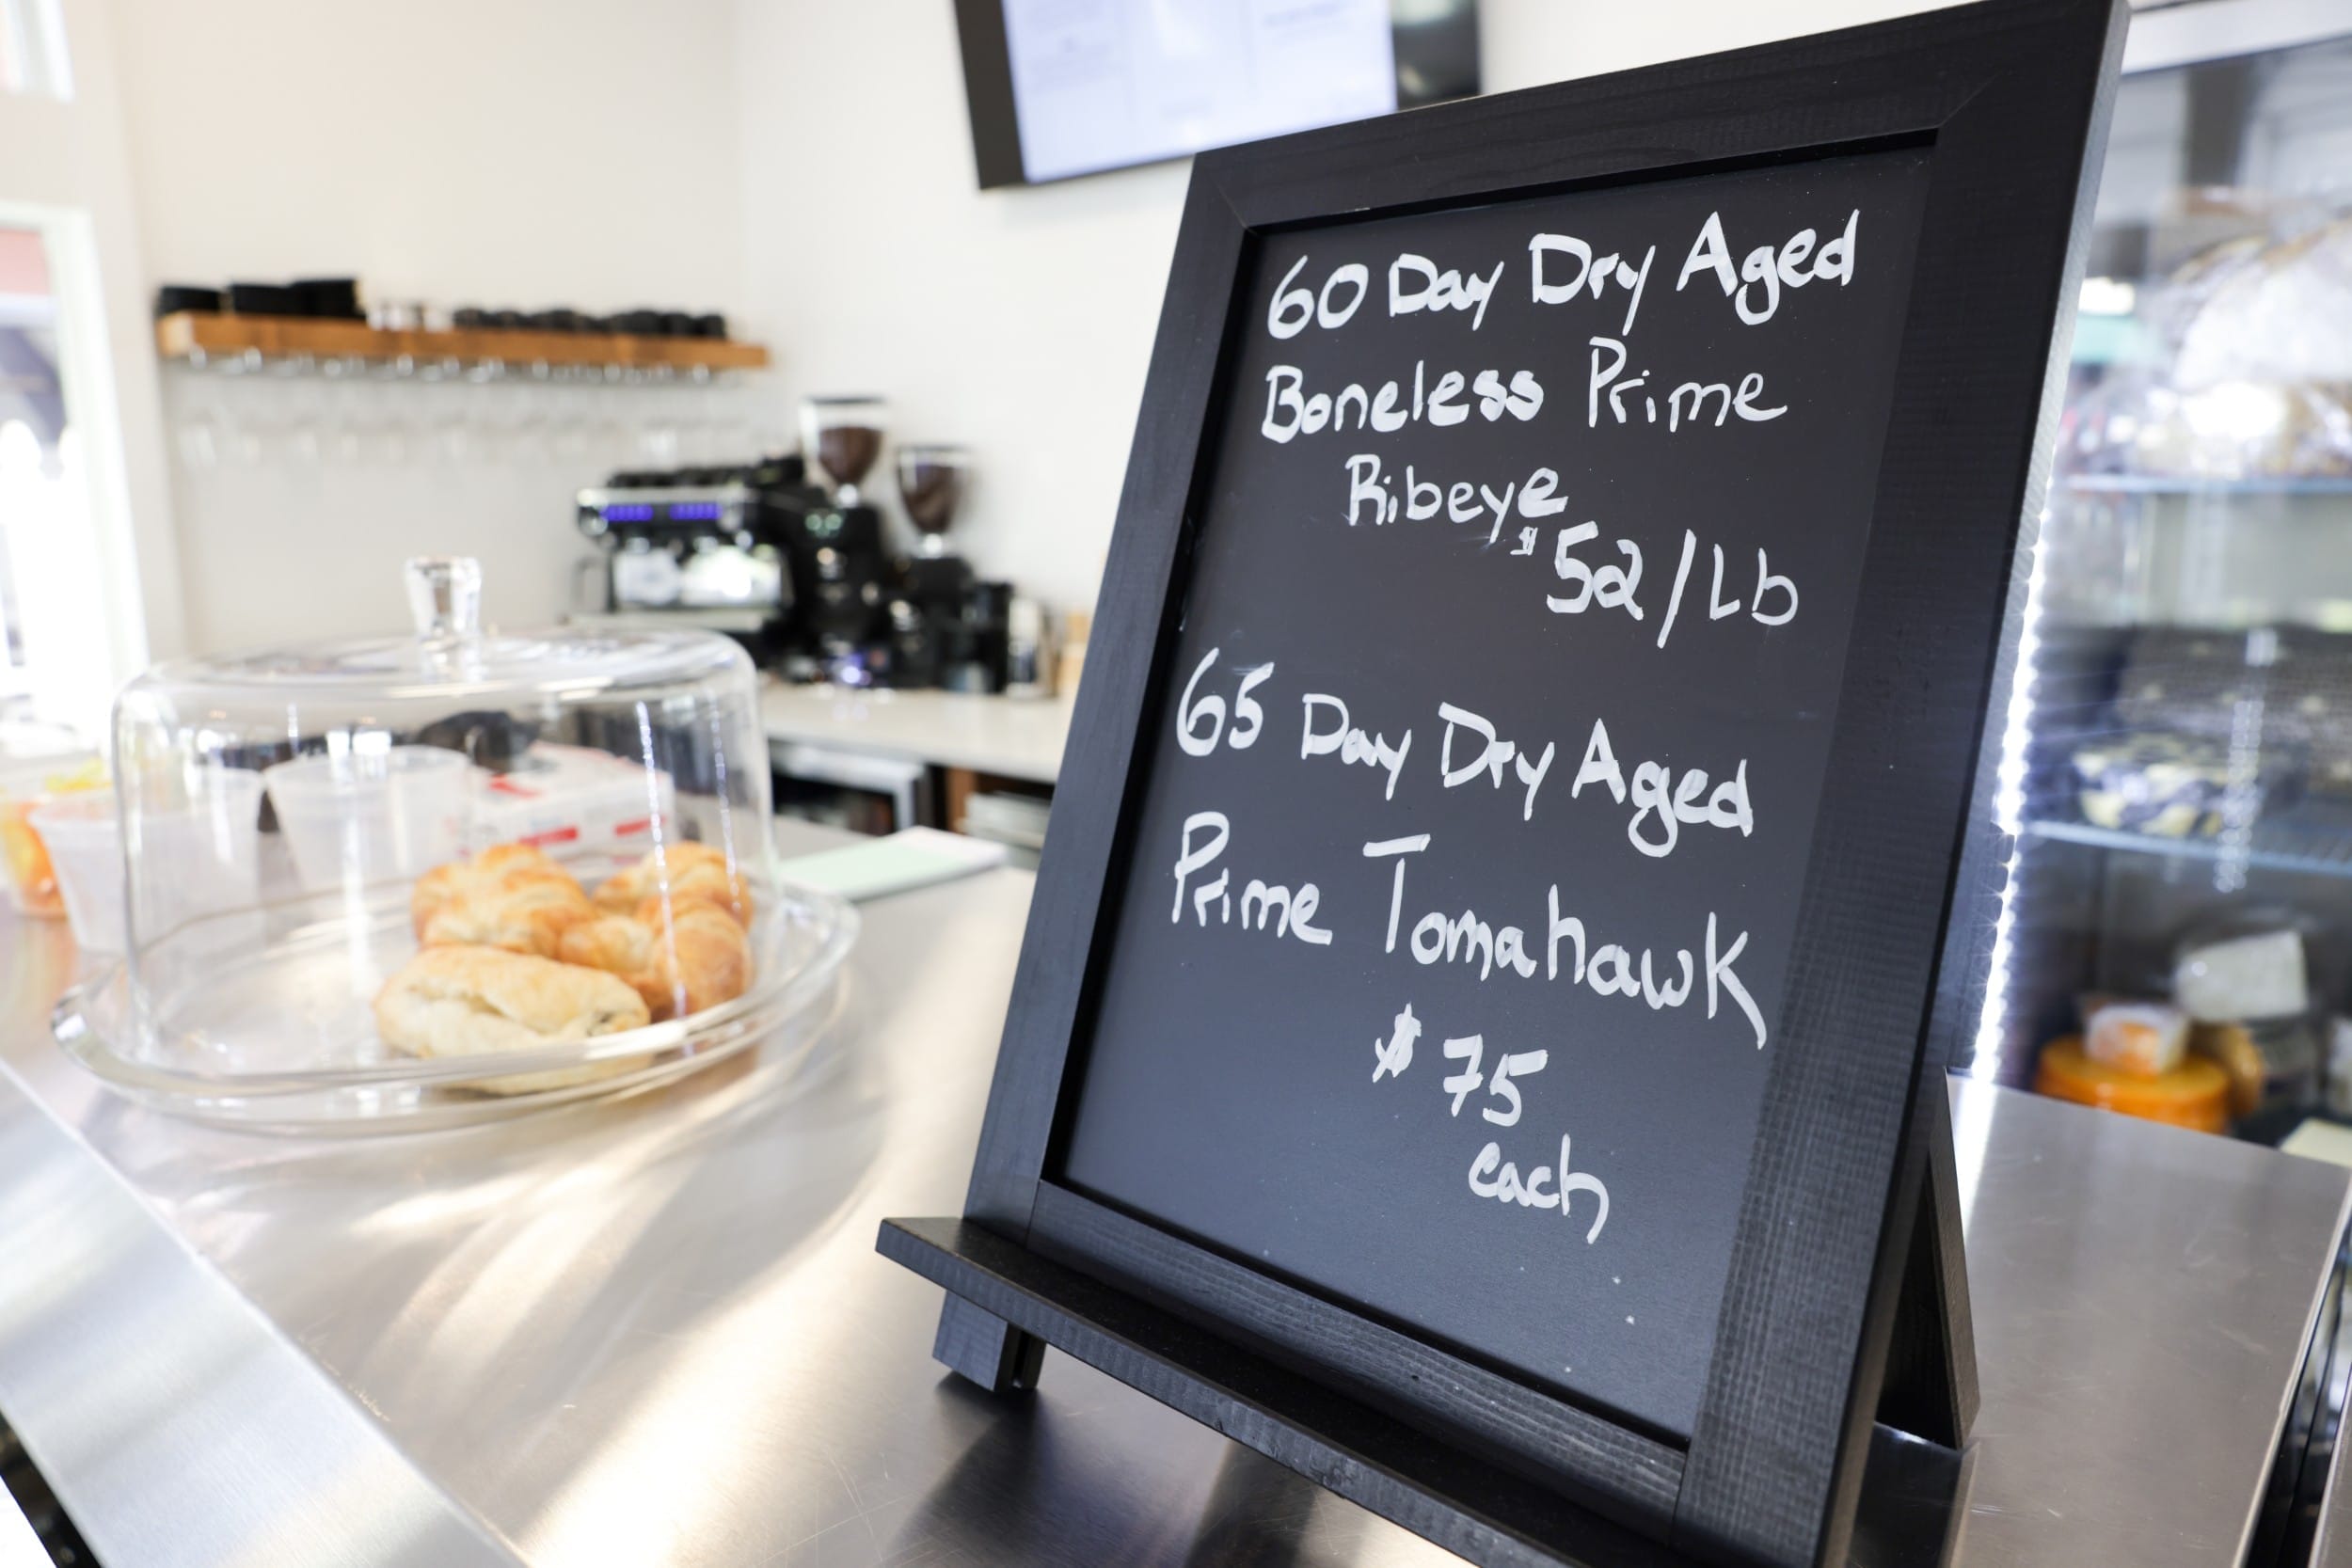 60 Day Dry Aged
Boneless Prime
Ribeye
$52/Lb
65 Day Dry Aged
Prime Tomahawk
$75
each